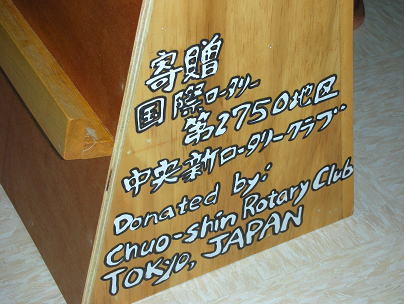 寄贈
国際ロータリー
第2750地区
中央新ロータリークラブ
Donated by:
Chuo-shin Rotary Club
TOKYO, JAPAN